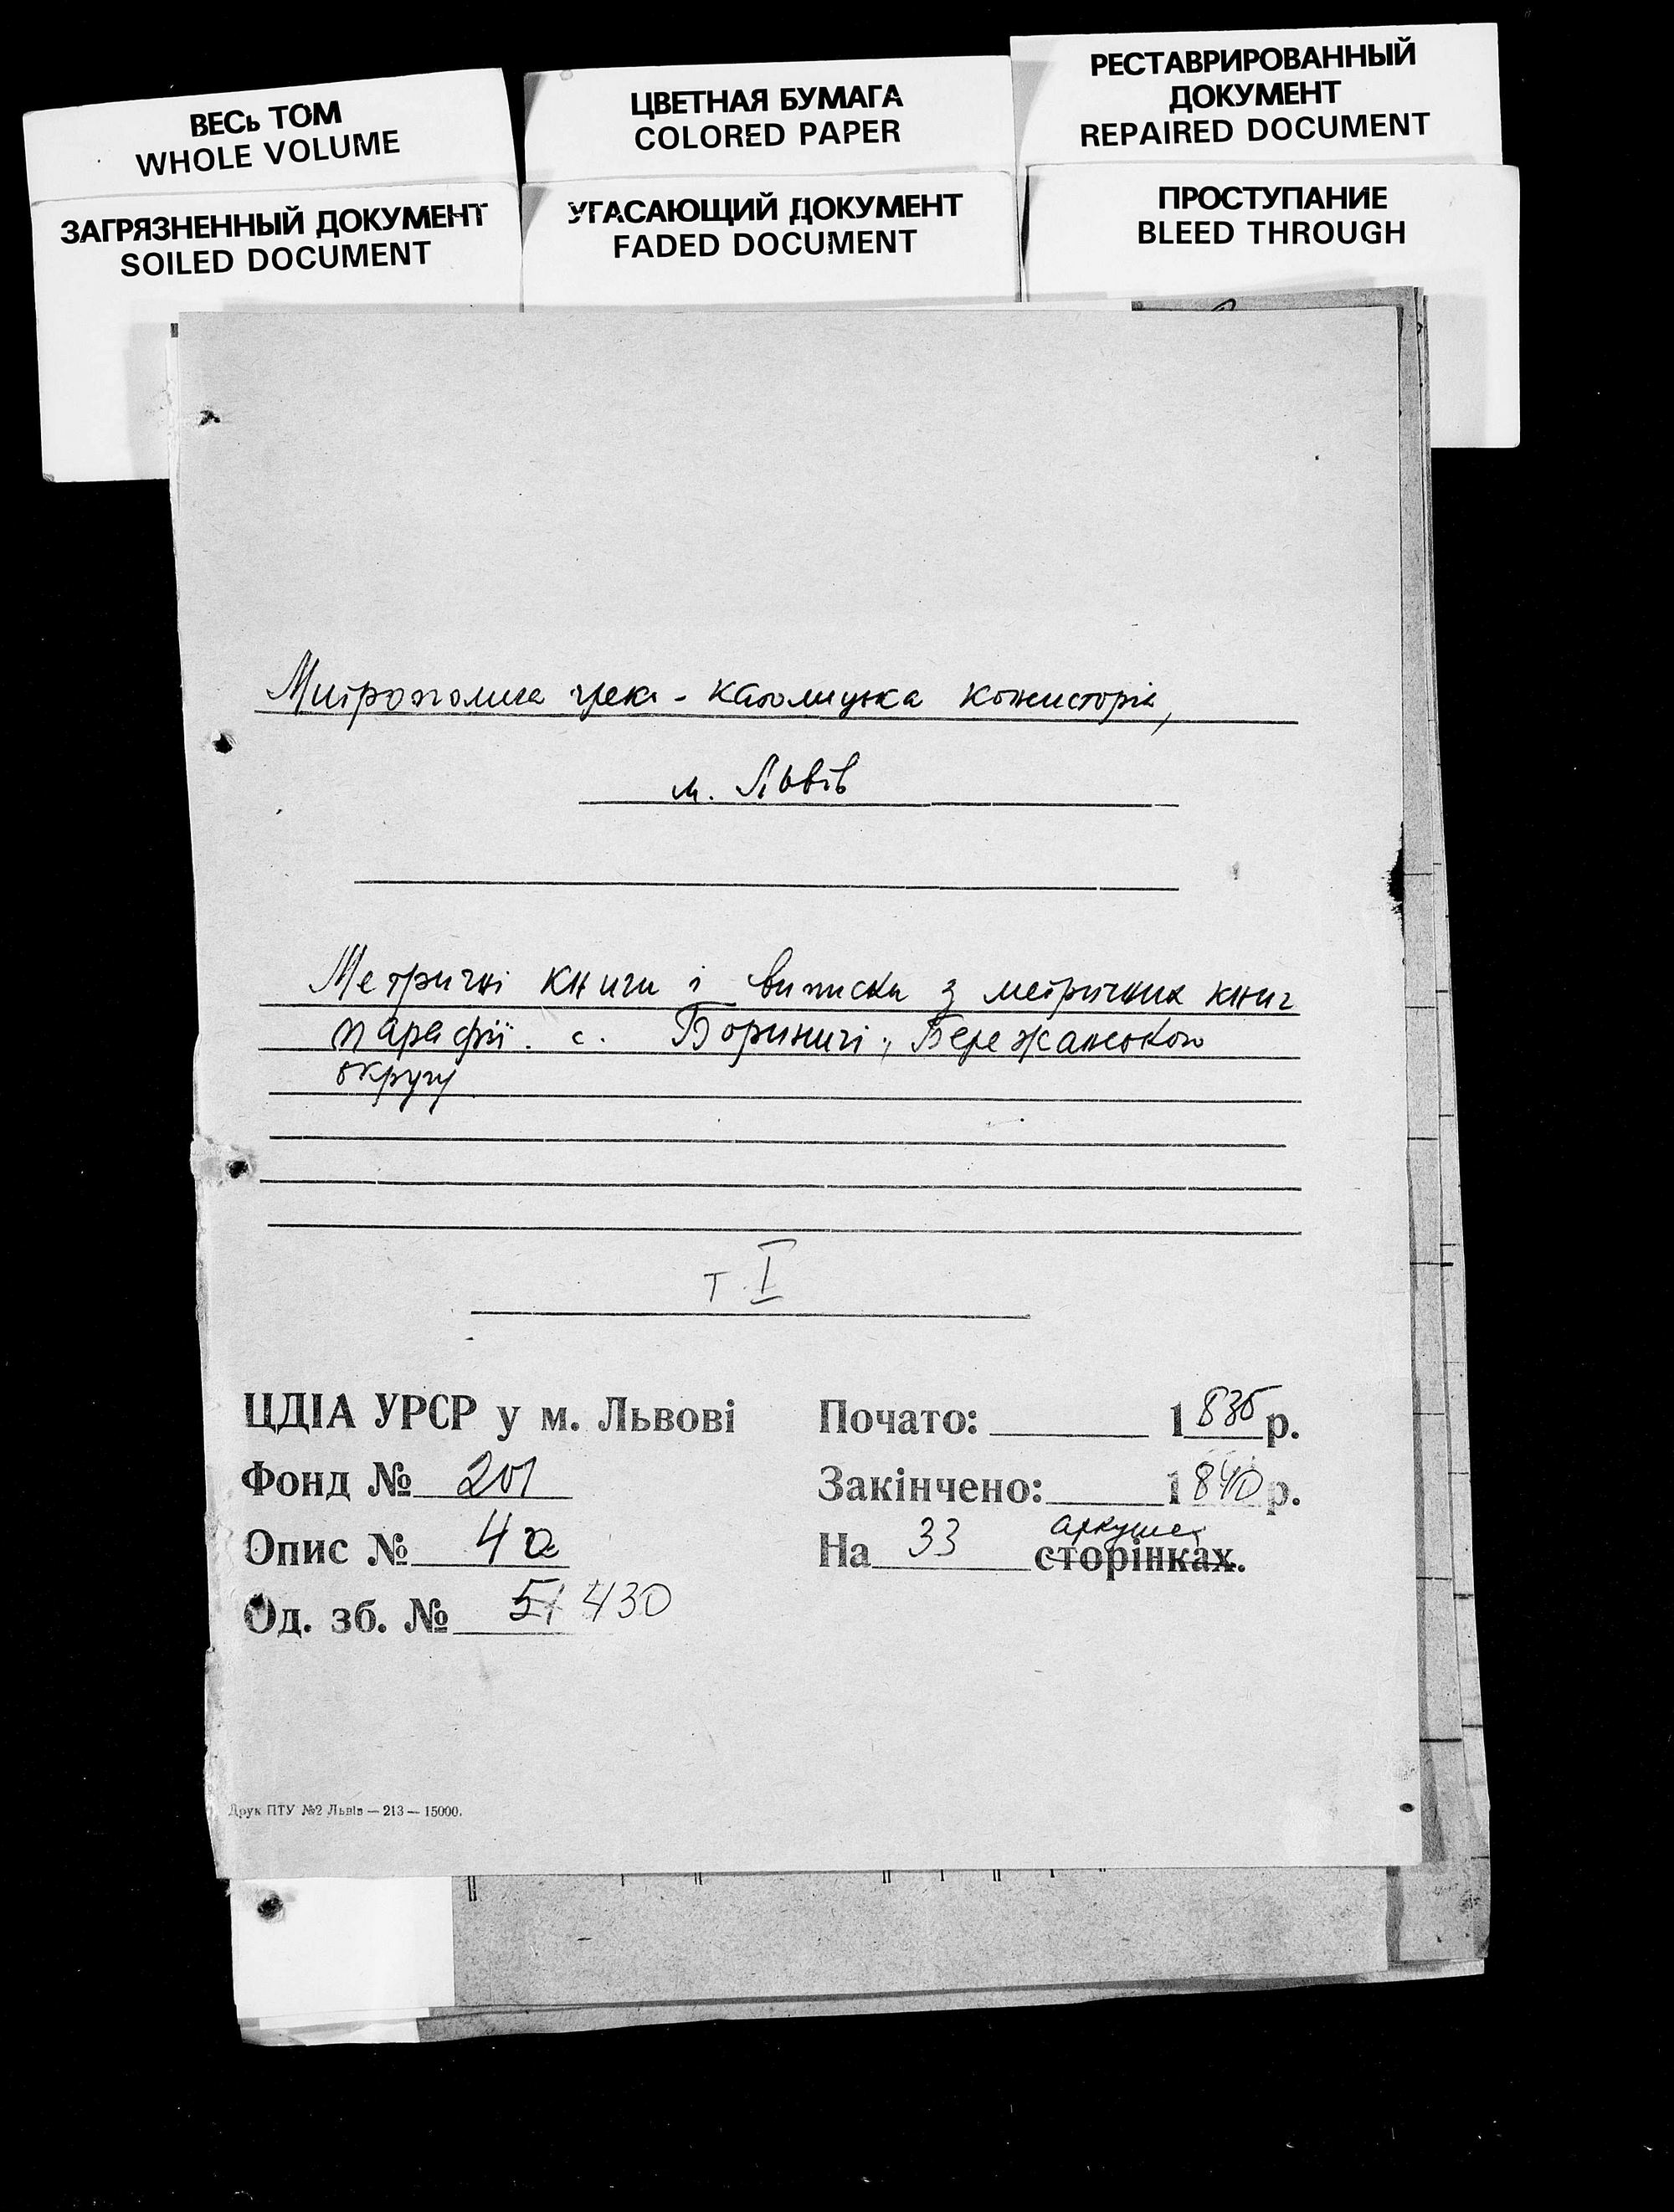 ВЕСЬ ТОМ
WHOLE VOLUME
ЦВЕТНАЯ БУМАГА
COLORED PAPER
РЕСТАВРИРОВАННЫЙ
ДОКУМЕНТ
REPAIRED DOCUMENT
ЗАГРЯЗНЕННЫЙ ДОКУМЕНТ
SOILED DOCUMENT
УГАСАЮЩИЙ ДОКУМЕНТ
FADED DOCUMENT
ПРОСТУПАНИЕ
BLEED THROUGH
Митрополича греко-католицька консисторія,
м. Львів
Метричні книги і виписки з метричних книг
парафії с. Бориничі, Бережанського
округу
т I
ЦДІА УРСР у м. Львові
Фонд № 201
Опис № 4а
Од. зб. № 51 430
Почато: 1835 р.
Закінчено: 1840 р.
аркушах
На 33 сторінках.
Друк ПТУ №2 Львів — 213 — 15000.